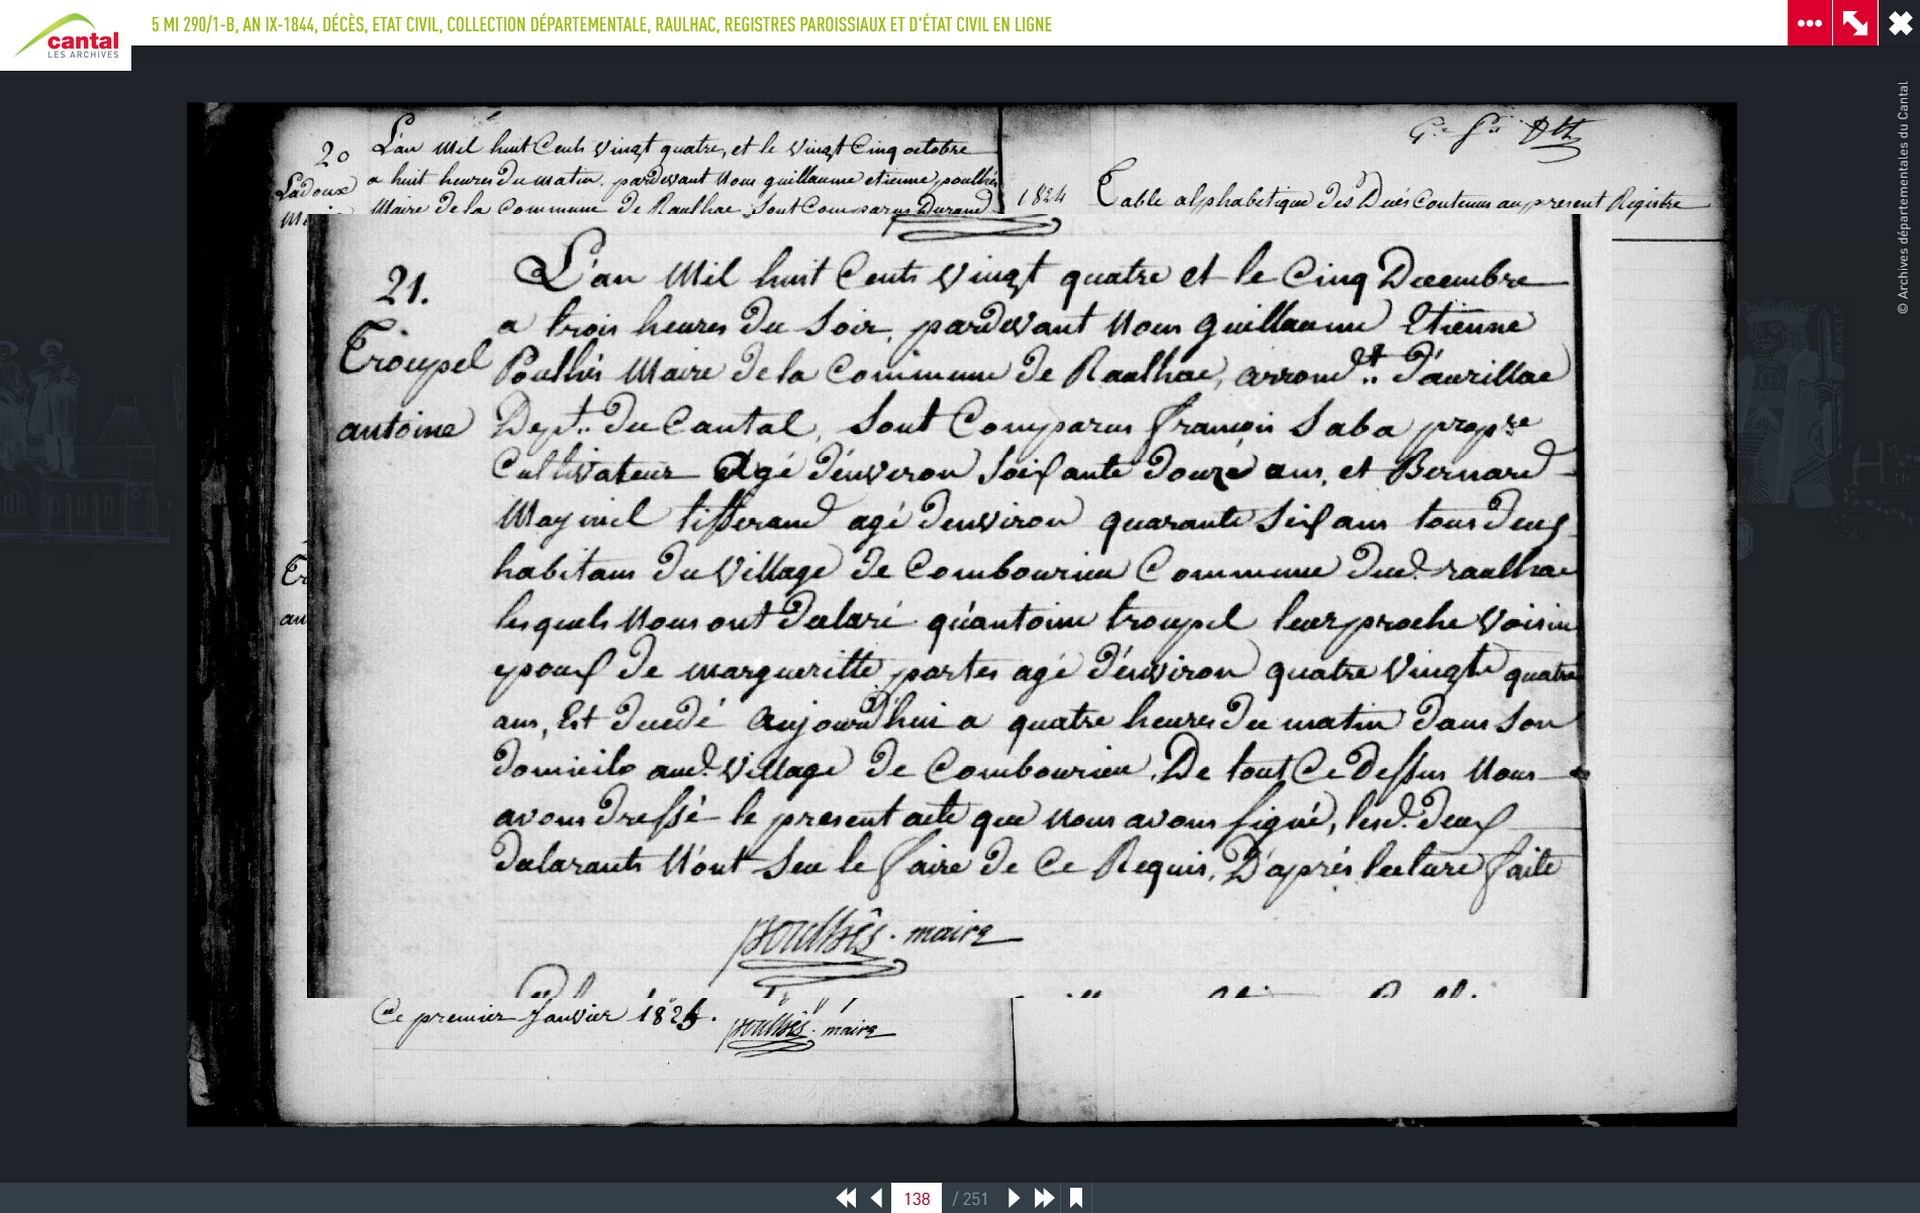 cantal
LES ARCHIVES
5 MI 290/1-B, AN IX-1844, DÉCÈS, ETAT CIVIL, COLLECTION DÉPARTEMENTALE, RAULHAC, REGISTRES PAROISSIAUX ET D'ÉTAT CIVIL EN LIGNE
© Archives départementales du Cantal
20
Ladoux
L'an Mil huit Cents Vingt quatre, et le Vingt Cinq octobre
a huit heures du matin. pardevant Nous guillaume etienne poulhès
Maire de la Commune de Raulhac, Sont Comparus Durand
1824 Table alphabetique des Decés Contenus au present Registre
21.
Troupel
antoine
L'an Mil huit Cents Vingt quatre et le Cinq Decembre
a trois heures du Soir, pardevant Nous guillaume Etienne
Poulhés Maire de la Commune de Raulhac, arrond.t d'aurillac
Dept. du Cantal, Sont Comparus françois Saba prop.re
Cultivateur Agé d'environ Soixante douze ans, et Bernard
Mayniel tisserand agé denviron quarante Six ans tous deux
habitans du Village de Combourieu Commune dud. raulhac
lesquels Nous ont declaré qu'antoine troupel leur proche Voisin
epoux de margueritte portes agé d'environ quatre Vingts quatre
ans, Est decedé aujourd'hui a quatre heures du matin dans Son
domicile aud. Village de Combourieu. De tout Ce dessus Nous
avons dressé le present acte que Nous avons signé, lesd. deux
declarants N'ont Seu le faire de Ce Requis, D'après lecture faite
poulhès. maire
Ce premier Janvier 1825. poulhès. maire
138 / 251